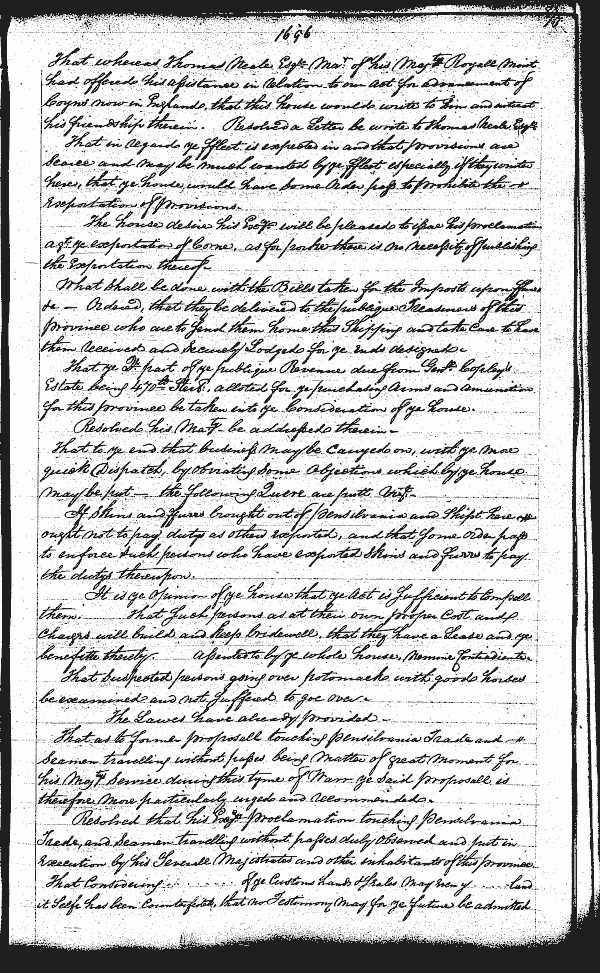 1696
That whereas Thomas Neale Esqr. Mar. of his Majtys Royall Mint
had offered his assistance in relation to our Act for advancement of
Coyns now in England, that this house would write to him and intreat
his friendship therein. Resolved a Letter be wrote to Thomas Neale Esqr.
That in regard ye ffleet is expected in and that provisions are
scarce and may be much wanted by ye ffleet especially if they winter
here, that ye house, would have some order pass to prohibit the
Exportation of Provisions.
The house desire his Exy. will be pleased to issue his proclamation
agt. ye exportation of Corne, as for porke there is no necessity of publishing
the Exportation thereof.
What shall be done with the Bills taken for the Imposts upon ffurrs
&c — Ordered, that they be delivered to the publique Treasurers of this
province who are to send them home this Shipping and take care to have
them received and securely Lodged for ye ends designed.
That ye part of ye publique Revenue due from Govr. Copley's
Estate being 470 alloted for ye purchasing Arms and Amunition
for this province be taken into ye Consideration of ye house.
Resolved his Maty. be addressed therein
That to ye end that business may be carryed on, with ye more
quick Dispatch, by obviating some Objections which by ye house
may be put — the following Quere are putt Vizt.
If Skins and ffurrs brought out of Pensilvania and Shipt here
ought not to pay dutys as others exported, and that some order pass
to enforce such persons who have exported Skins and ffurrs to pay
the dutys thereupon.
It is ye opinion of ye house that ye Act is sufficient to Compell
them. That such persons as at their own proper Cost and
Charges will build and keep bridewell, that they have a Lease and ye
benefitts thereby. Assented to by ye whole house, Nemine Contradicente.
That suspected persons going over potomack with good horses
be examined and not suffered to goe over.
The Lawes have already provided.
That as to former proposall touching Pensilvania Trade and
Seamen travelling without passes being Matter of great Moment for
his Majtys Service during this tyme of Warr ye said proposall is
therefore more particularly urged and recommended.
Resolved that his Exys. proclamation touching Pensilvania
Trade, and Seamen travelling without passes duly Observed and put in
Execution by his Severall Majestrates and other inhabitants of this province
That Considering . . . . . of ye Customs hands & seales may . . . . land
it selfe has been Counterfeited, that no Testimony may for ye future be admitted